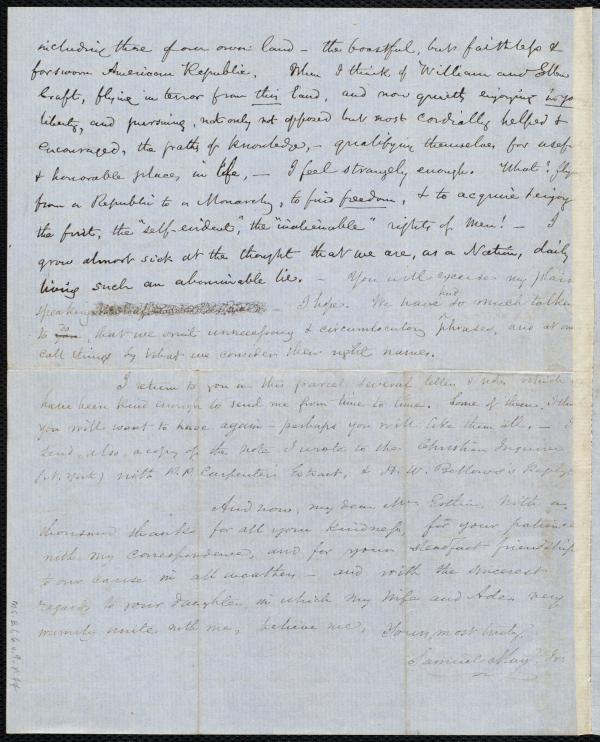 including those of our own land – the boastful, but faithless &
forsworn American Republic. When I think of William and Ellen
Craft, flying in terror from this land, and now quietly enjoying
liberty, and pursuing, not only not opposed but most cordially helped &
encouraged, the paths of knowledge, – qualifying themselves for useful
& honorable places, in life, – I feel strangely enough. What! flying
from a Republic to a Monarchy, to find freedom, & to acquire & enjoy
the first, the "self-evident", the "inalienable" rights of Men! – I
grow almost sick at the thought that we are, as a Nation, daily
living such an abominable lie. – You will excuse my plain
speaking – I hope. We have had so much talking
to do, that we omit unnecessary & circumlocutory phrases, and at once
call things by what we consider their right names.
I return to you in this parcel several letters & notes which
have been kind enough to send me from time to time. Some of them, I think
you will want to have again – perhaps you will like them all. – I
send, also, a copy of the note I wrote to the Christian Inquirer
(N. York) with Carpenter's Extract, & H. W. Bellows's Reply.
And now, my dear Mr Estlin, with a
thousand thanks for all your kindness, for your patience
with my correspondence, and for your steadfast friendship
to our cause in all weathers – and with the sincerest
regards to your daughter, in which my Wife and Adeline very
warmly unite with me, believe me, Yours, most truly,
Samuel May, Jr.